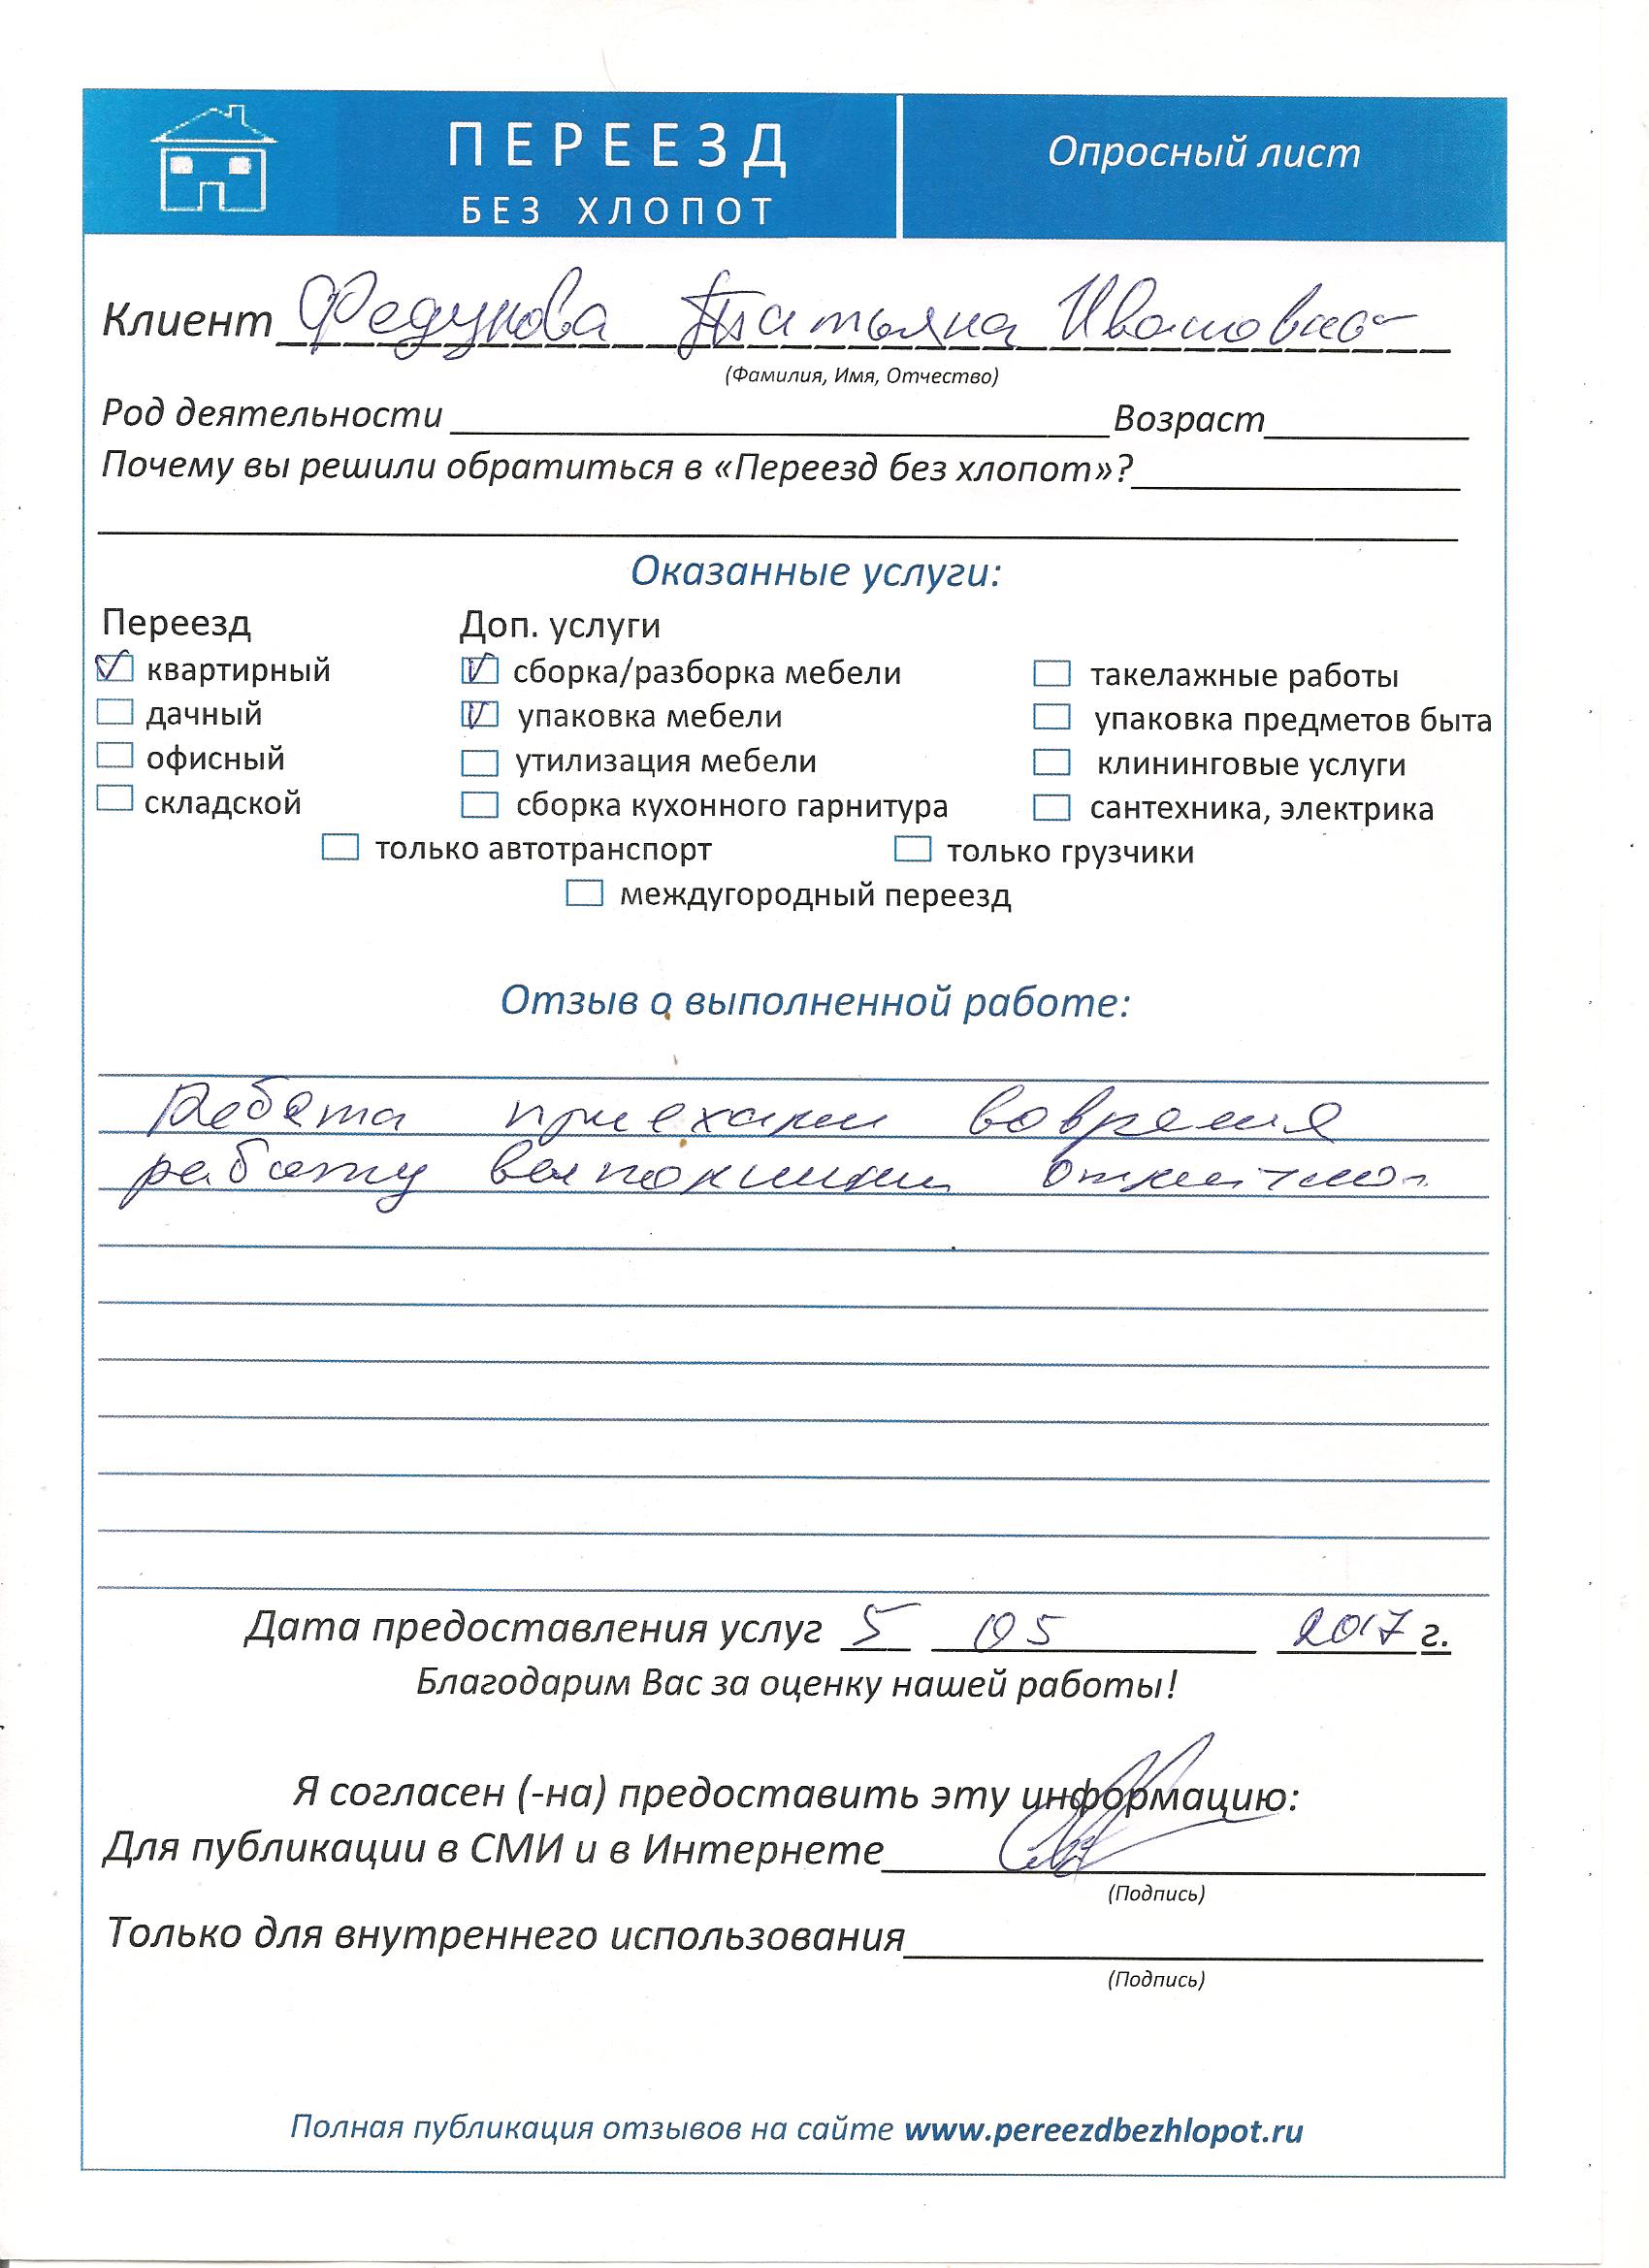 ПЕРЕЕЗД
БЕЗ ХЛОПОТ
Опросный лист
Клиент Федунова Татьяна Ивановна
(Фамилия, Имя, Отчество)
Род деятельности Возраст
Почему вы решили обратиться в «Переезд без хлопот»?
Оказанные услуги:
Переезд Доп. услуги
квартирный сборка/разборка мебели такелажные работы
дачный упаковка мебели упаковка предметов быта
офисный утилизация мебели клининговые услуги
складской сборка кухонного гарнитура сантехника, электрика
только автотранспорт только грузчики
междугородный переезд
Отзыв о выполненной работе:
Ребята приехали вовремя
работу выполнили отлично
Дата предоставления услуг 5 05 2017 г.
Благодарим Вас за оценку нашей работы!
Я согласен (-на) предоставить эту информацию:
Для публикации в СМИ и в Интернете
(Подпись)
Только для внутреннего использования
(Подпись)
Полная публикация отзывов на сайте www.pereezdbezhlopot.ru